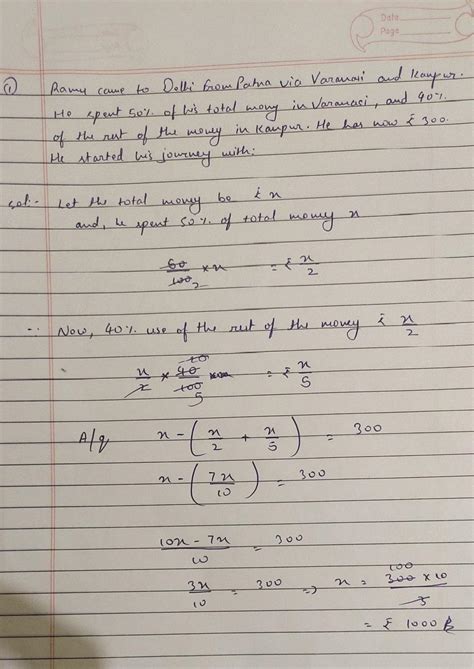 Date
Page
① Ramu came to Delhi from Patna via Varanasi and Kanpur.
He spent 50% of his total mony in Varanasi, and 40%
of the rest of the money in Kanpur. He has now ₹ 300.
He started his journey with:
Sol:- Let the total money be ₹ x
and, he spent 50% of total money x
50/100 2 × x = ₹ x/2
∴ Now, 40% use of the rest of the money ₹ x/2
x/2 × 40/100 10 5 = ₹ x/5
A/q x - (x/2 + x/5) = 300
x - (7x/10) = 300
10x - 7x/10 = 300
3x/10 = 300 ⇒ x = 100 300 × 10/3
= ₹ 1000